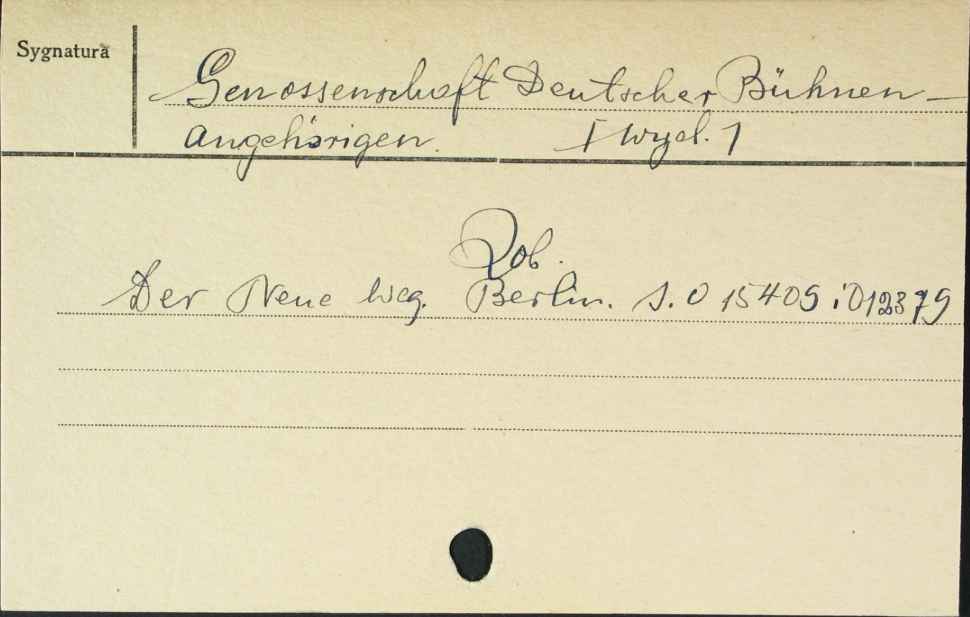 Sygnatura
Genossenschaft Deutscher Bühnen-
angehörigen. [wyd.]
Zob.
Der Neue Weg. Berlin. S.O 15409 i O12379